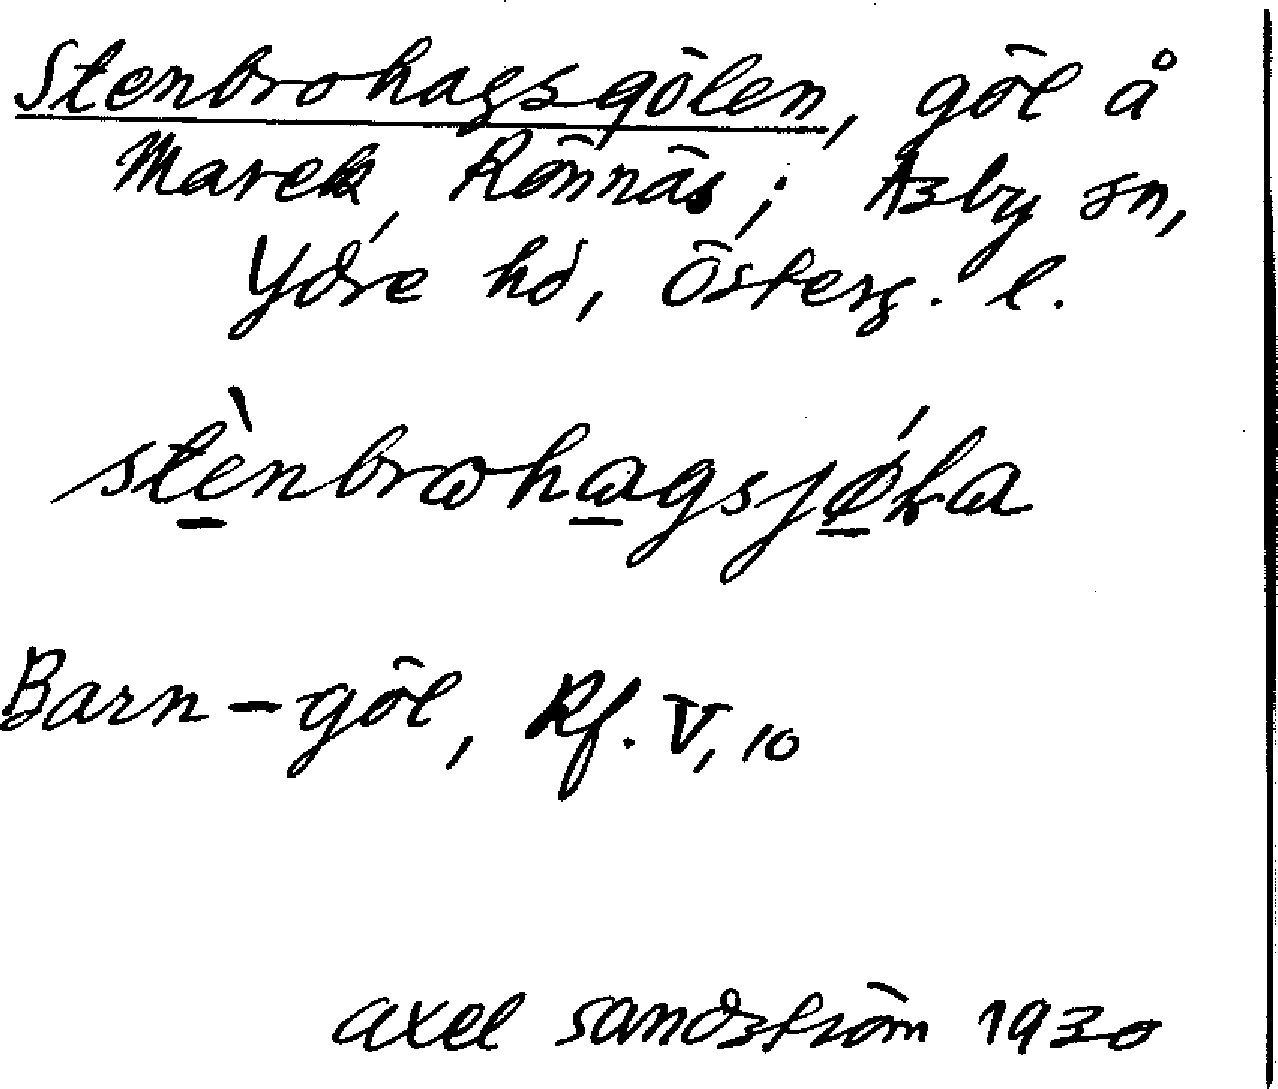 Stenbrohagsgölen, göl å
Marek, Rönnäs; Asby sn,
Ydre hd, Österg. l.
stènbrωhagsjǿla
Barn-göl, Rf. V, 10
axel sandström 1930